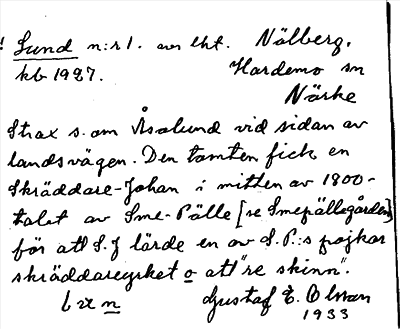 ! Lund n:r 1. av lht. Nälberg.
kb 1927. Hardemo sn
Närke
Strax s. om Åsalund vid sidan av
landsvägen. Den tomten fick en
Skräddare-Johan i mitten av 1800-
talet av Sme-Pälle [se Smepällegården]
för att S. J lärde en av S. P:s pojkar
skräddareyrket o att "re skinn".
Gustaf E. Olsson
1933